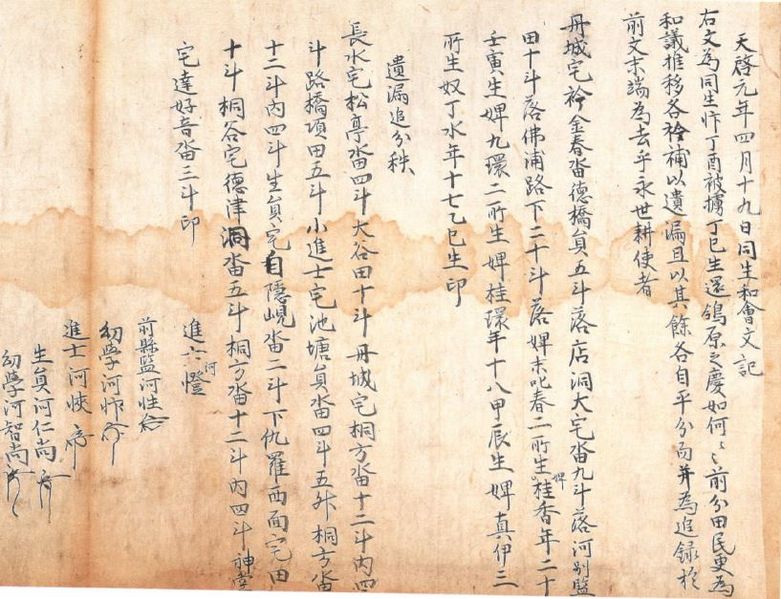 天啓元年四月十九日同生和會文記
右文為同生忤丁酉被擄丁巳生還鴒原之慶如何〻前分田民更為
和議推移各衿補以遺漏且以其餘各自平分而并為追錄於
前文末端為去乎永世耕使者
丹城宅衿金春畓德橋員五斗落店洞大宅畓九斗落河別監
田十斗落佛浦路下二十斗落婢末叱春二所生婢桂香年二十
壬寅生婢九環二所生婢桂環年十八甲辰生婢真伊三
所生奴丁水年十七乙巳生印
遺漏追分秩
長水宅松亭畓四斗大谷田十斗丹城宅桐方畓十二斗內四
斗路橋項田五斗小進士宅池塘員畓四斗五升桐方畓
十二斗內四斗生員宅自隱峴畓二斗下仇羅西面宅田
十斗桐谷宅德津洞畓五斗桐方畓十二斗內四斗神堂
宅達好音畓三斗印
進士河憕
前縣監河惺
幼學河忤
進士河悏
生員河仁尚
幼學河智尚